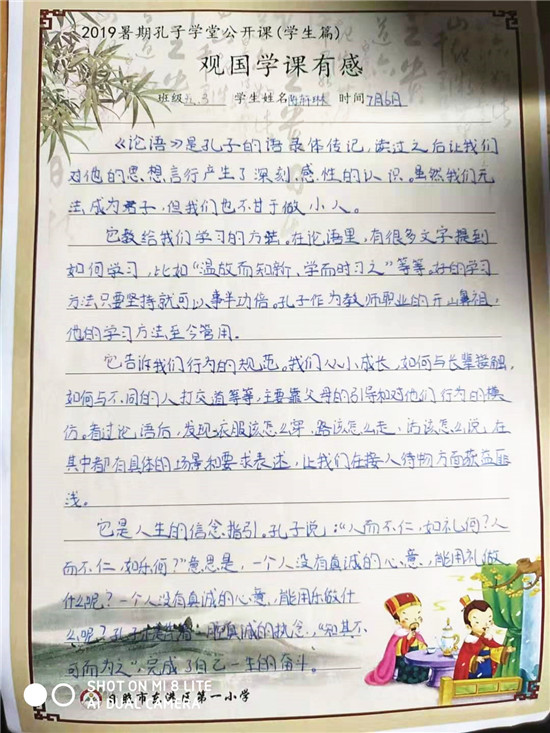 2019暑期孔子学堂公开课(学生篇)
观国学课有感
班级 学生姓名 时间 7月6月
《论语》是孔子的语录体传记，读过之后让我们
对他的思想言行产生了深刻、感性的认识。虽然我们无
法成为君子，但我们也不甘于做小人。
它教给我们学习的方法。在论语里，有很多文字提到
如何学习，比如“温故而知新，学而时习之”等等。好的学习
方法只要坚持就可以事半功倍。孔子作为教师职业的开山鼻祖，
他的学习方法至今管用。
它告诉我们行为的规范。我们从小成长，如何与长辈接触，
如何与不同的人打交道等等，主要靠父母的引导和对他们行为的模
仿。看过论语后，发现衣服该怎么穿，路该怎么走，话该怎么说，在
其中都有具体的场景和要求表述，让我们在接人待物方面获益匪
浅。
它是人生的信念指引。孔子说：“人而不仁，如礼何？人
而不仁，如乐何？”意思是，一个人没有真诚的心意，能用礼做
什么呢？一个人没有真诚的心意，能用乐做什
么呢？孔子 真诚的执念，“知其不
可而为之”，完成了自己一生的奋斗。
市 港区第一小学
SHOT ON MI 8 LITE
AI DUAL CAMERA